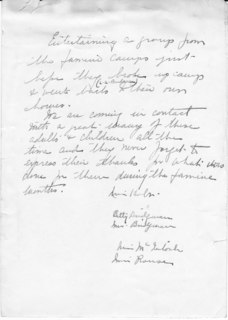 Entertaining a group from
the famine camps just
before they broke up camp
& went back to their own
homes.
We are coming in contact
with a great many of these
adults & children all the
time and they never forget to
express their thanks for what was
done for them during the famine
months.
Betty Bridgman
Mrs. Bridgman
Miss McIntosh
Miss